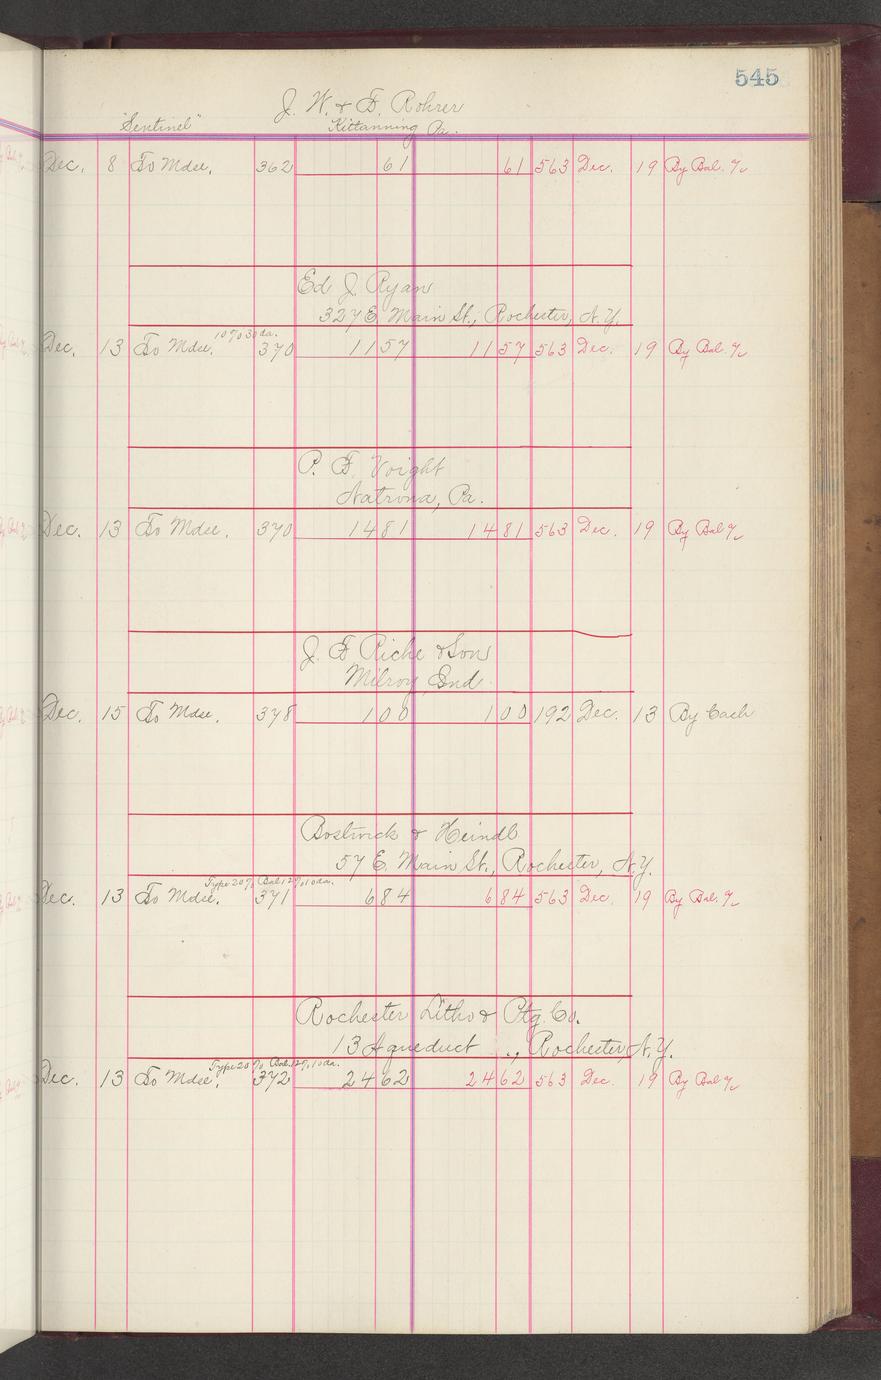 545
J. W. & F. Rohrer
"Sentinel" Kittanning Pa.
Dec. 8 To Mdse. 362 61 61 563 Dec. 19 By Bal. %
Ed J. Ryan
327 E. Main St., Rochester, N.Y.
10% 30 da.
Dec. 13 To Mdse. 370 11 57 11 57 563 Dec. 19 By Bal. %
P. F. Voight
Natrona, Pa.
Dec. 13 To Mdse. 370 14 81 14 81 563 Dec. 19 By Bal %
J. F. Riche & Son
Milroy, Ind.
Dec. 15 To Mdse. 378 1 00 1 00 192 Dec. 13 By Cash
Bostwick & Heindl
57 E. Main St., Rochester, N.Y.
Type 20% Bal. 12% 10 da.
Dec. 13 To Mdse. 371 6 84 6 84 563 Dec. 19 By Bal. %
Rochester Litho & Ptg. Co.
13 Aqueduct ., Rochester, N.Y.
Type 20% Bal. 12% 10 da.
Dec. 13 To Mdse. 372 24 62 24 62 563 Dec. 19 By Bal %